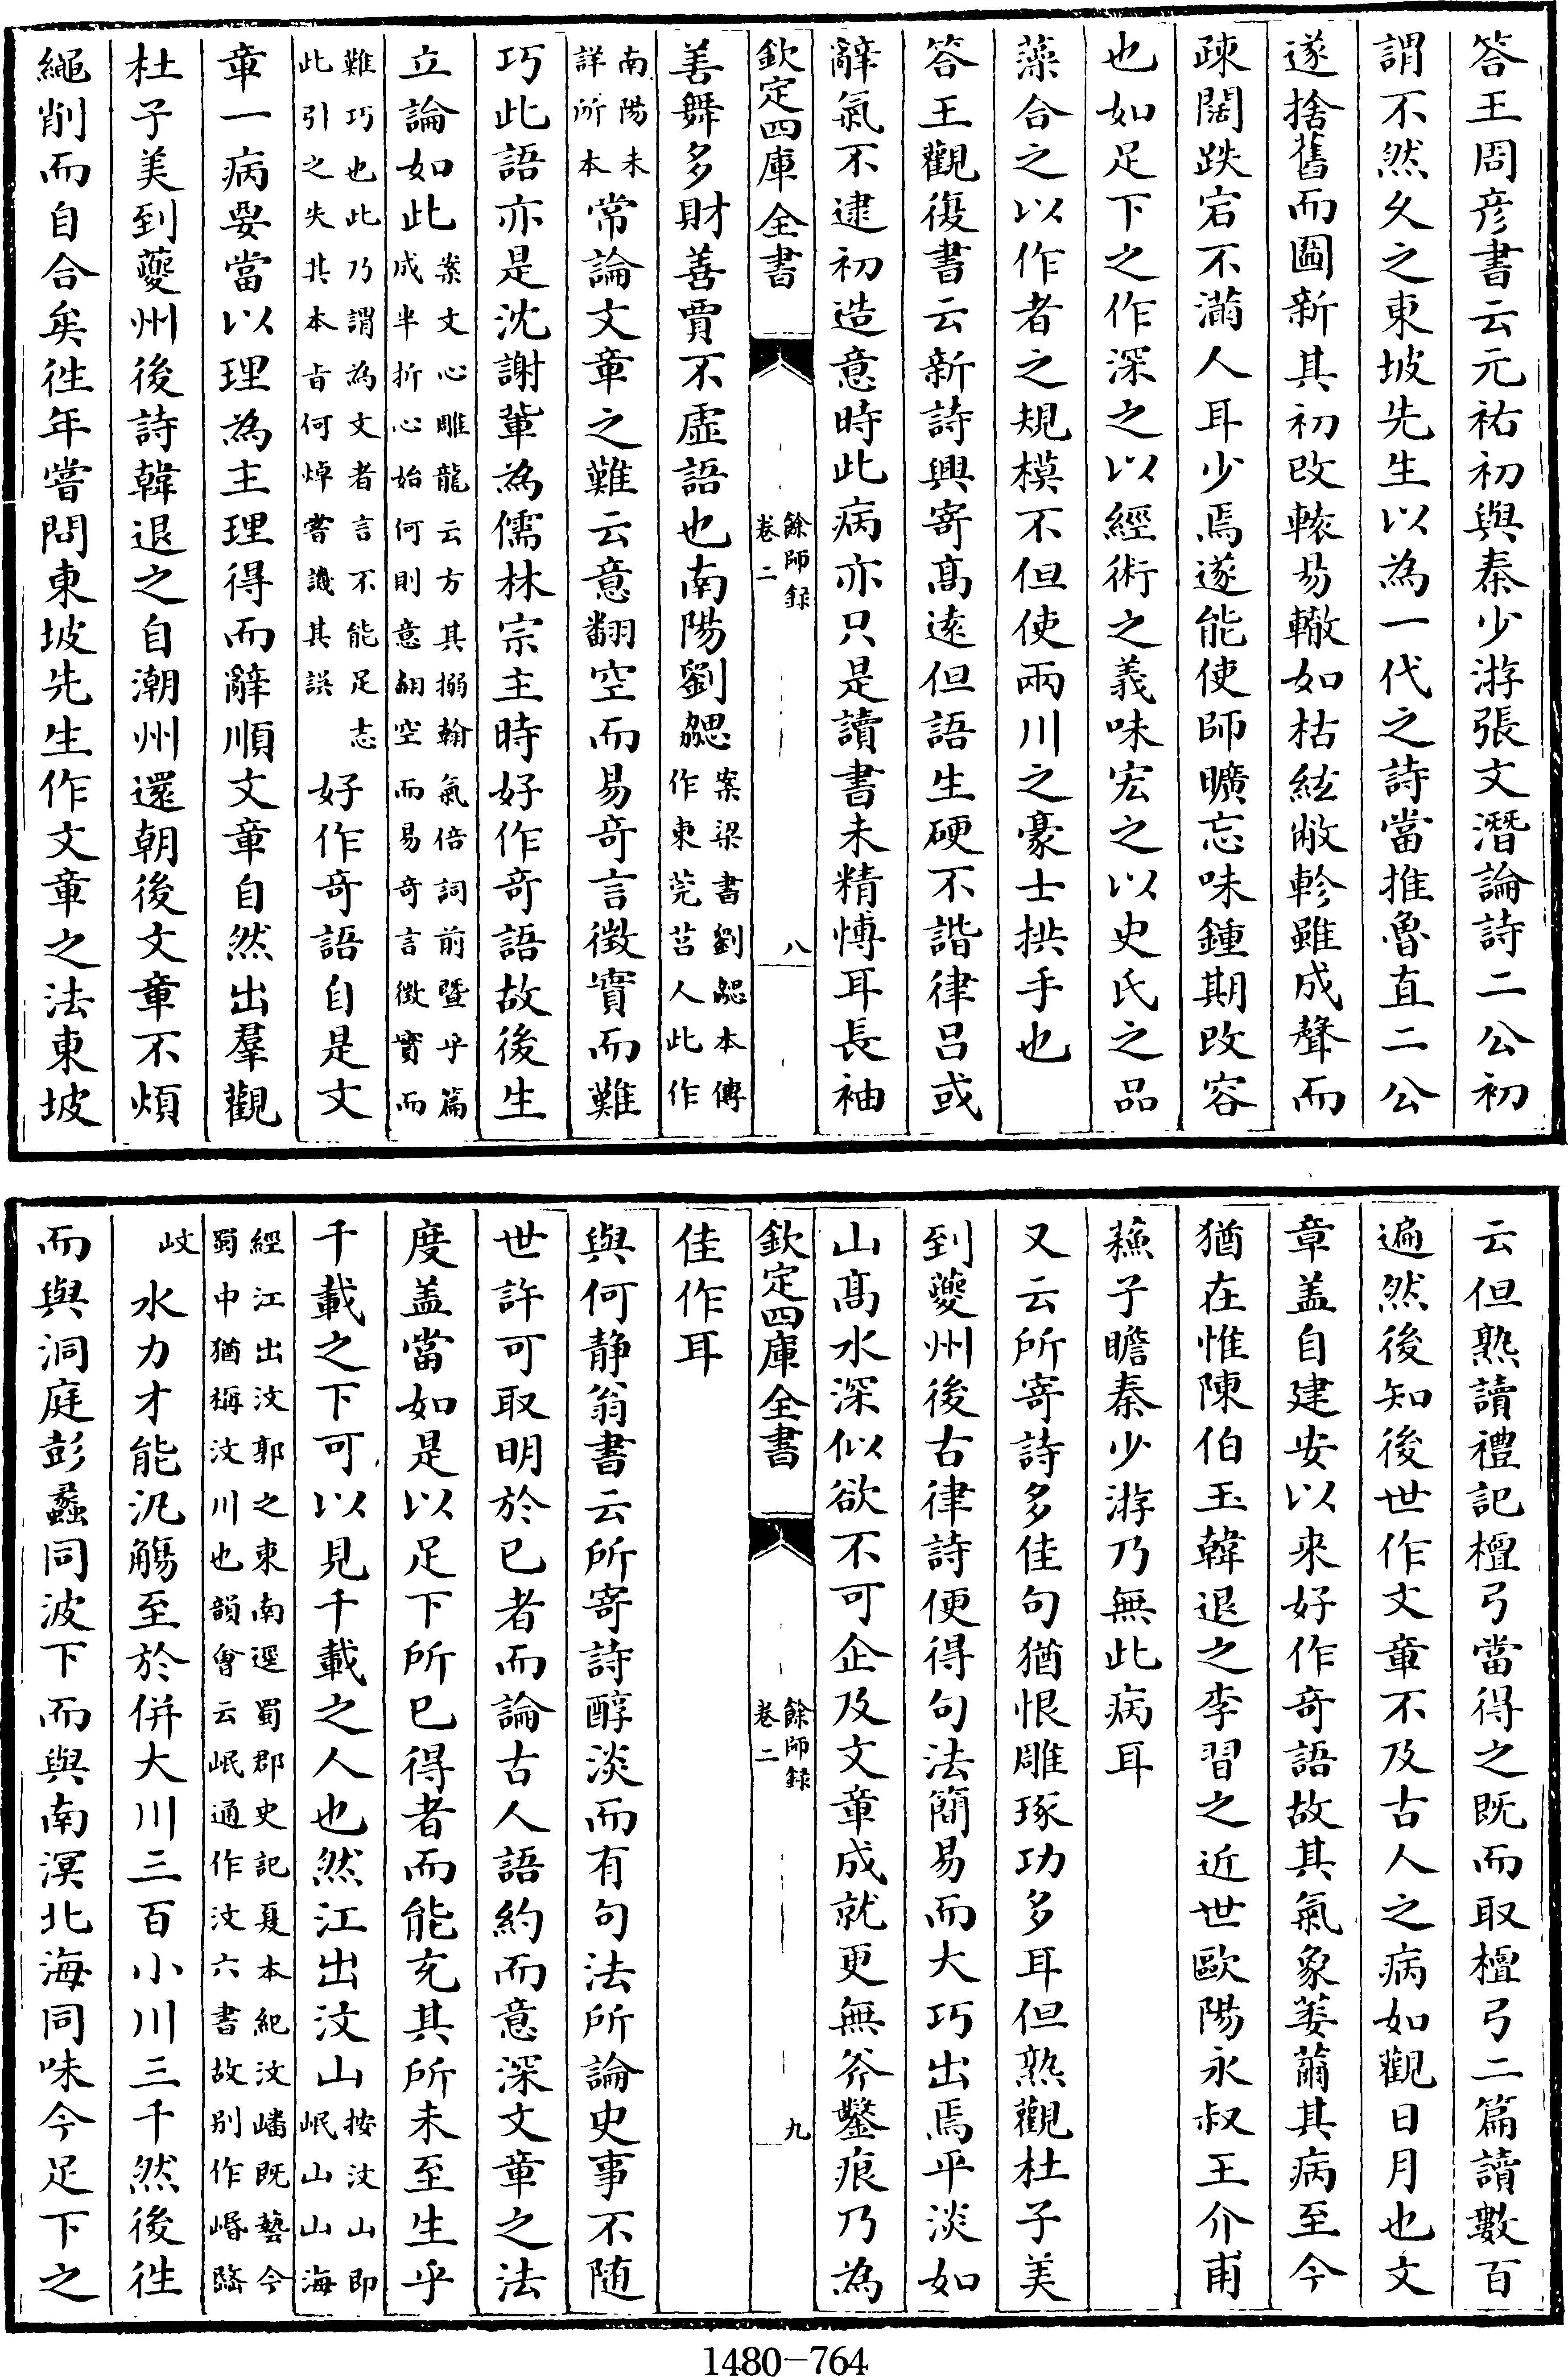 答王周彦書云元祐初與秦少游張文潛論詩二公初
謂不然久之東坡先生以為一代之詩當推魯直二公
遂捨舊而圖新其初改轅易轍如枯絃敝軫雖成聲而
疎闊跌宕不滿人耳少焉遂能使師曠忘味鍾期改容
也如足下之作深之以經術之義味宏之以史氏之品
藻合之以作者之規模不但使兩川之豪士拱手也
答王觀復書云新詩興寄髙逺但語生硬不諧律吕或
辭氣不逮初造意時此病亦只是讀書未精慱耳長袖
欽定四庫全書
餘師録
卷二
八
善舞多財善賈不虛語也南陽劉勰案梁書劉勰本傳作東莞莒人此作
南陽未詳所本常論文章之難云意翻空而易奇言徵實而難
巧此語亦是沈謝輩為儒林宗主時好作奇語故後生
立論如此案文心雕龍云方其搦翰氣倍詞前暨乎篇成半折心始何則意翻空而易奇言徵實而
難巧也此乃謂為文者言不能足志此引之失其本旨何焯嘗譏其誤好作奇語自是文
章一病要當以理為主理得而辭順文章自然出羣觀
杜子美到夔州後詩韓退之自潮州還朝後文章不煩
繩削而自合矣徃年嘗問東坡先生作文章之法東坡
云但熟讀禮記檀弓當得之既而取檀弓二篇讀數百
遍然後知後世作文章不及古人之病如觀日月也文
章盖自建安以來好作奇語故其氣象萎薾其病至今
猶在惟陳伯玉韓退之李習之近世歐陽永叔王介甫
蘓子瞻秦少游乃無此病耳
又云所寄詩多佳句猶恨雕琢功多耳但熟觀杜子美
到夔州後古律詩便得句法簡易而大巧出焉平淡如
山髙水深似欲不可企及文章成就更無斧鑿痕乃為
欽定四庫全書
餘師録
卷二
九
佳作耳
與何静翁書云所寄詩醇淡而有句法所論史事不随
世許可取明於已者而論古人語約而意深文章之法
度盖當如是以足下所已得者而能充其所未至生乎
千載之下可以見千載之人也然江出汶山按汶山即岷山山海
經江出汶郭之東南逕蜀郡史記夏本紀汶嶓既藝今蜀中猶稱汶川也韻會云岷通作汶六書故别作㟭䧟
㟭水力才能汎觴至於併大川三百小川三千然後徃
而與洞庭彭蠡同波下而與南溟北海同味今足下之
1480-764